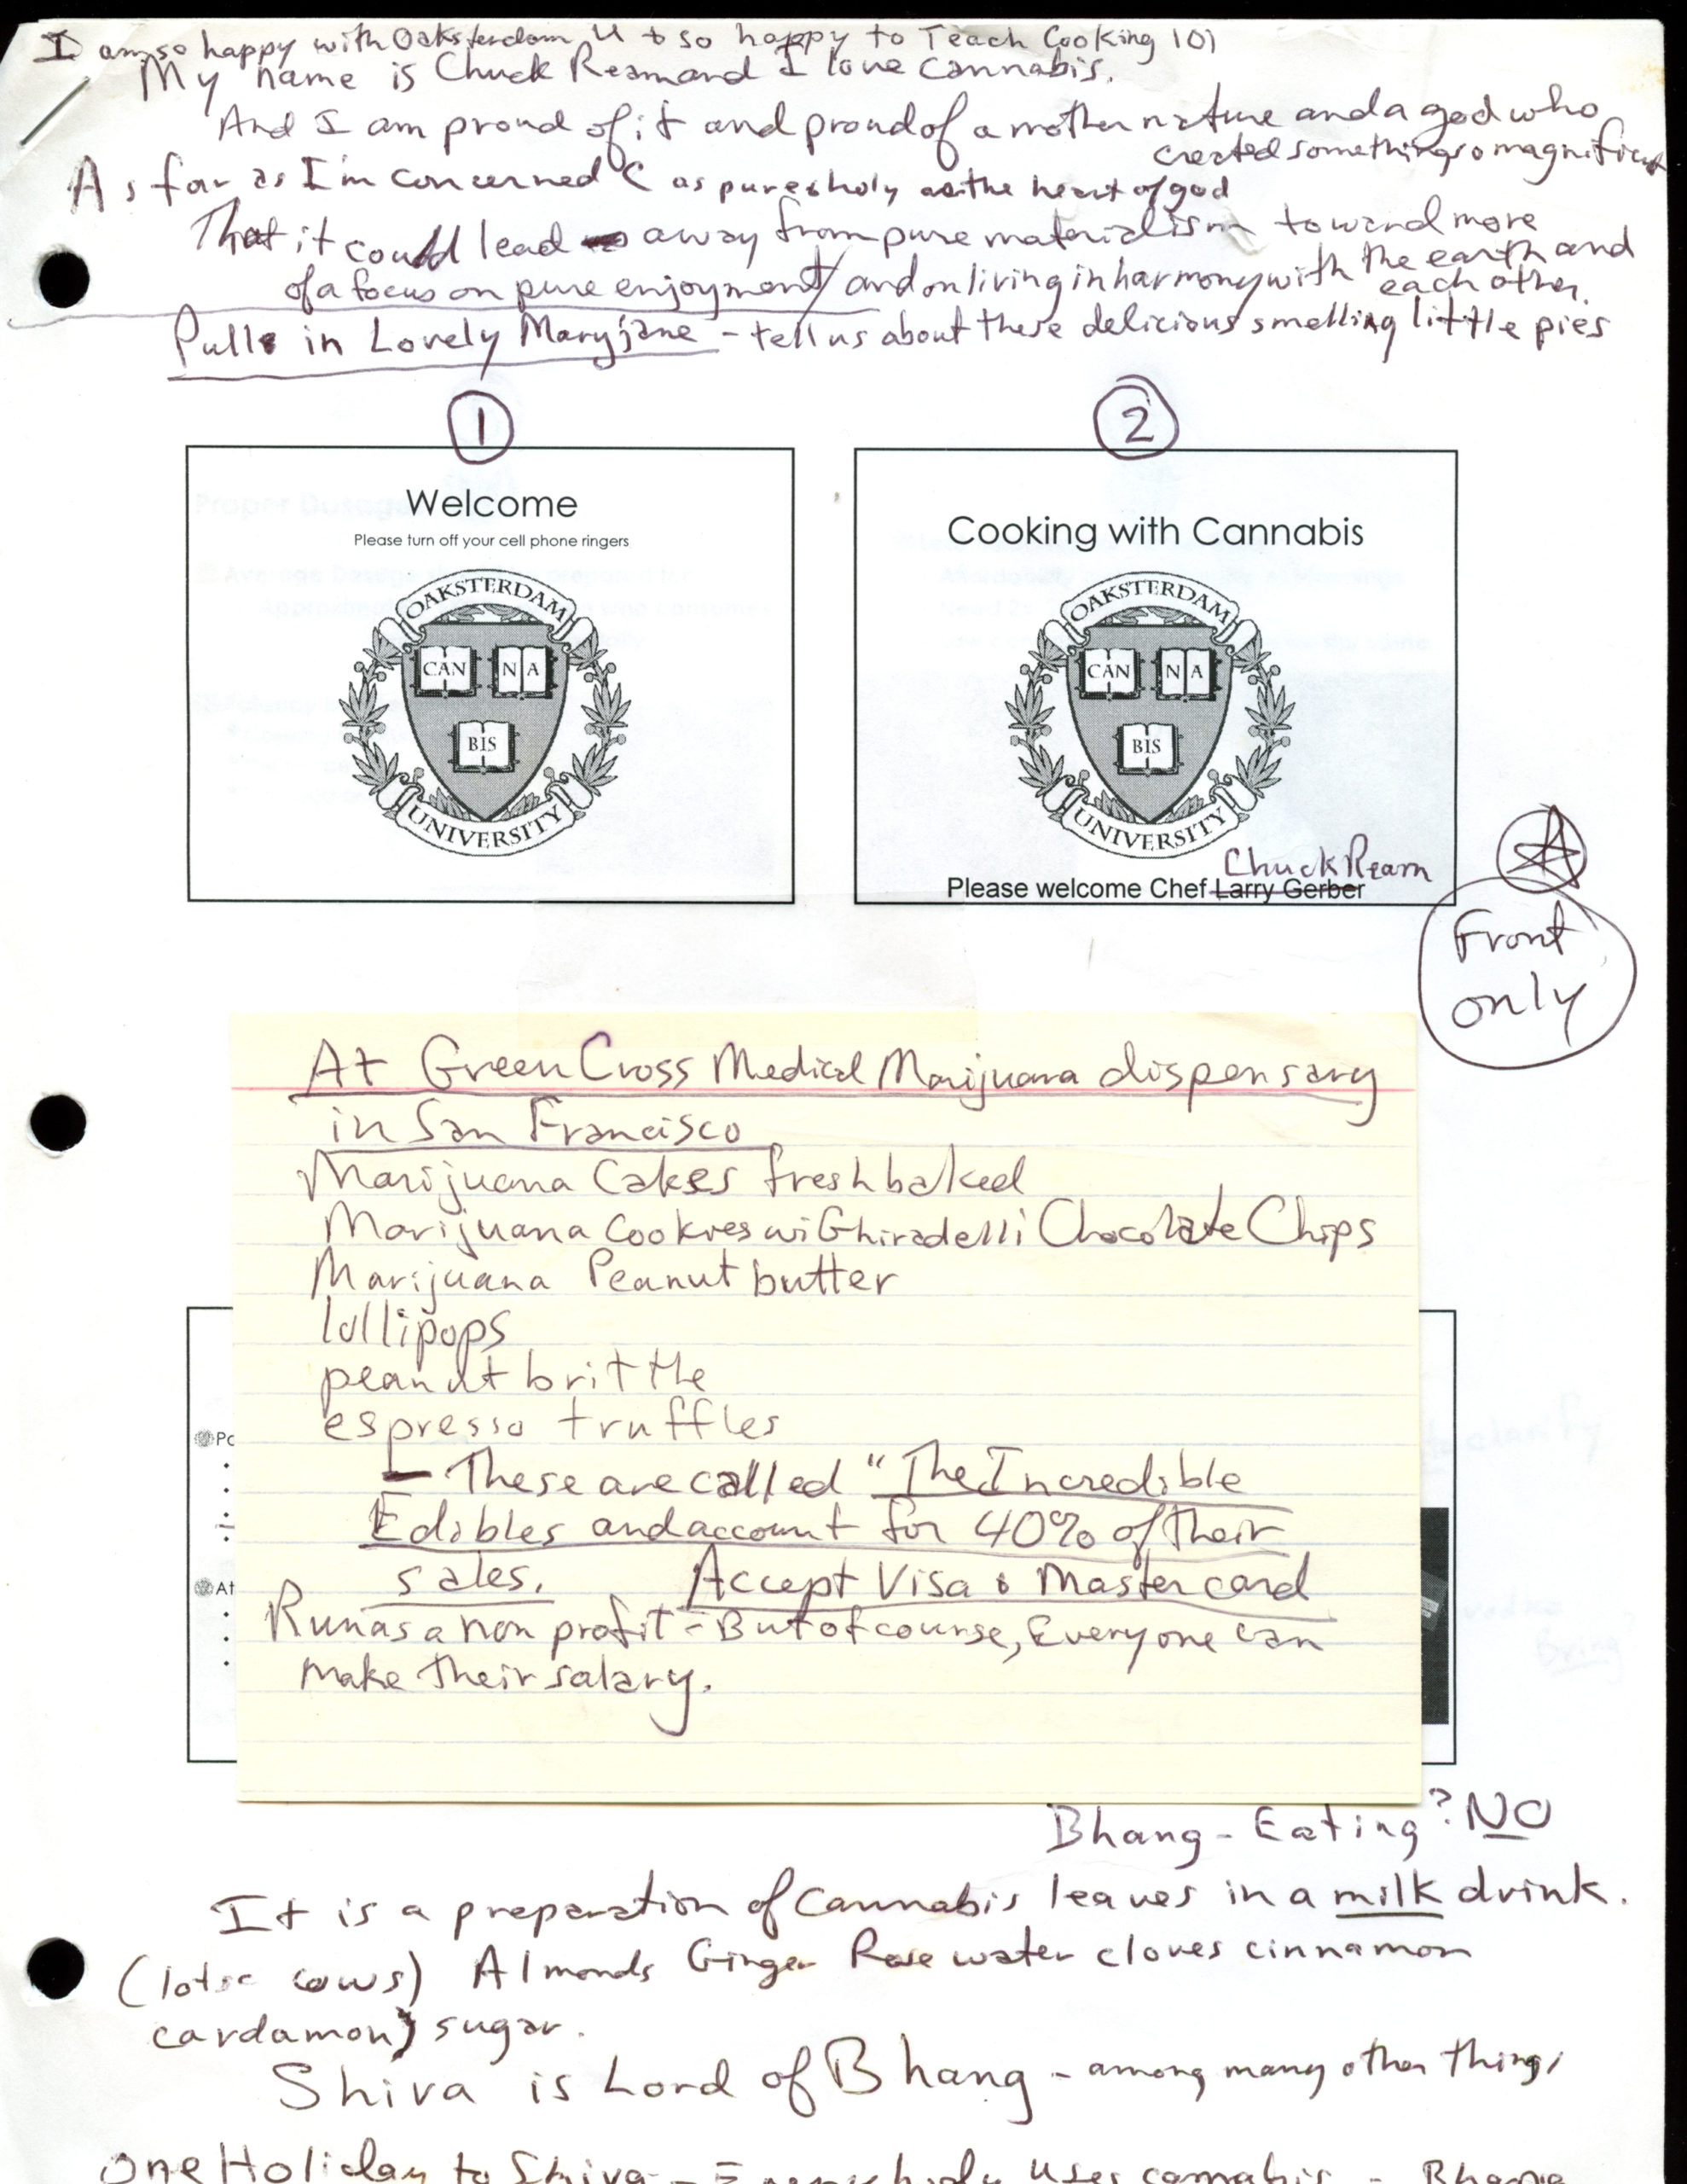 I am so happy with Oaksterdam U & so happy to Teach Cooking 101
My name is Chuck Ream and I love cannabis.
And I am proud of it and proud of a mother nature and a god who
created something so magnificent
As far as I'm concerned C as pure & holy as the heart of god
That it could lead away from pure materialism toward more
of a focus on pure enjoyment / and on living in harmony with the earth and
each other.
Pull in Lovely Maryjane - tell us about these delicious smelling little pies
1
2
Welcome
Please turn off your cell phone ringers
OAKSTERDAM
CAN N A
BIS
UNIVERSITY
Cooking with Cannabis
OAKSTERDAM
CAN N A
BIS
UNIVERSITY
Chuck Ream
Please welcome Chef Larry Gerber
Front
only
At Green Cross Medical Marijuana dispensary
in San Francisco
Marijuana Cakes fresh baked
Marijuana Cookies wi Ghiradelli Chocolate Chips
Marijuana Peanut butter
lollipops
peanut brittle
espresso truffles
- These are called "The Incredible
Edibles and account for 40% of their
sales. Accept Visa & Mastercard
Run as a non profit - But of course, Everyone can
make their salary.
Po
At
to clarify
Bring
Bhang - Eating? NO
It is a preparation of cannabis leaves in a milk drink.
(lotsa cows) Almonds Ginger Rose water cloves cinnamon
cardamon) sugar.
Shiva is Lord of Bhang - among many other things
One Holiday to Shiva - Everybody uses cannabis - Bhang